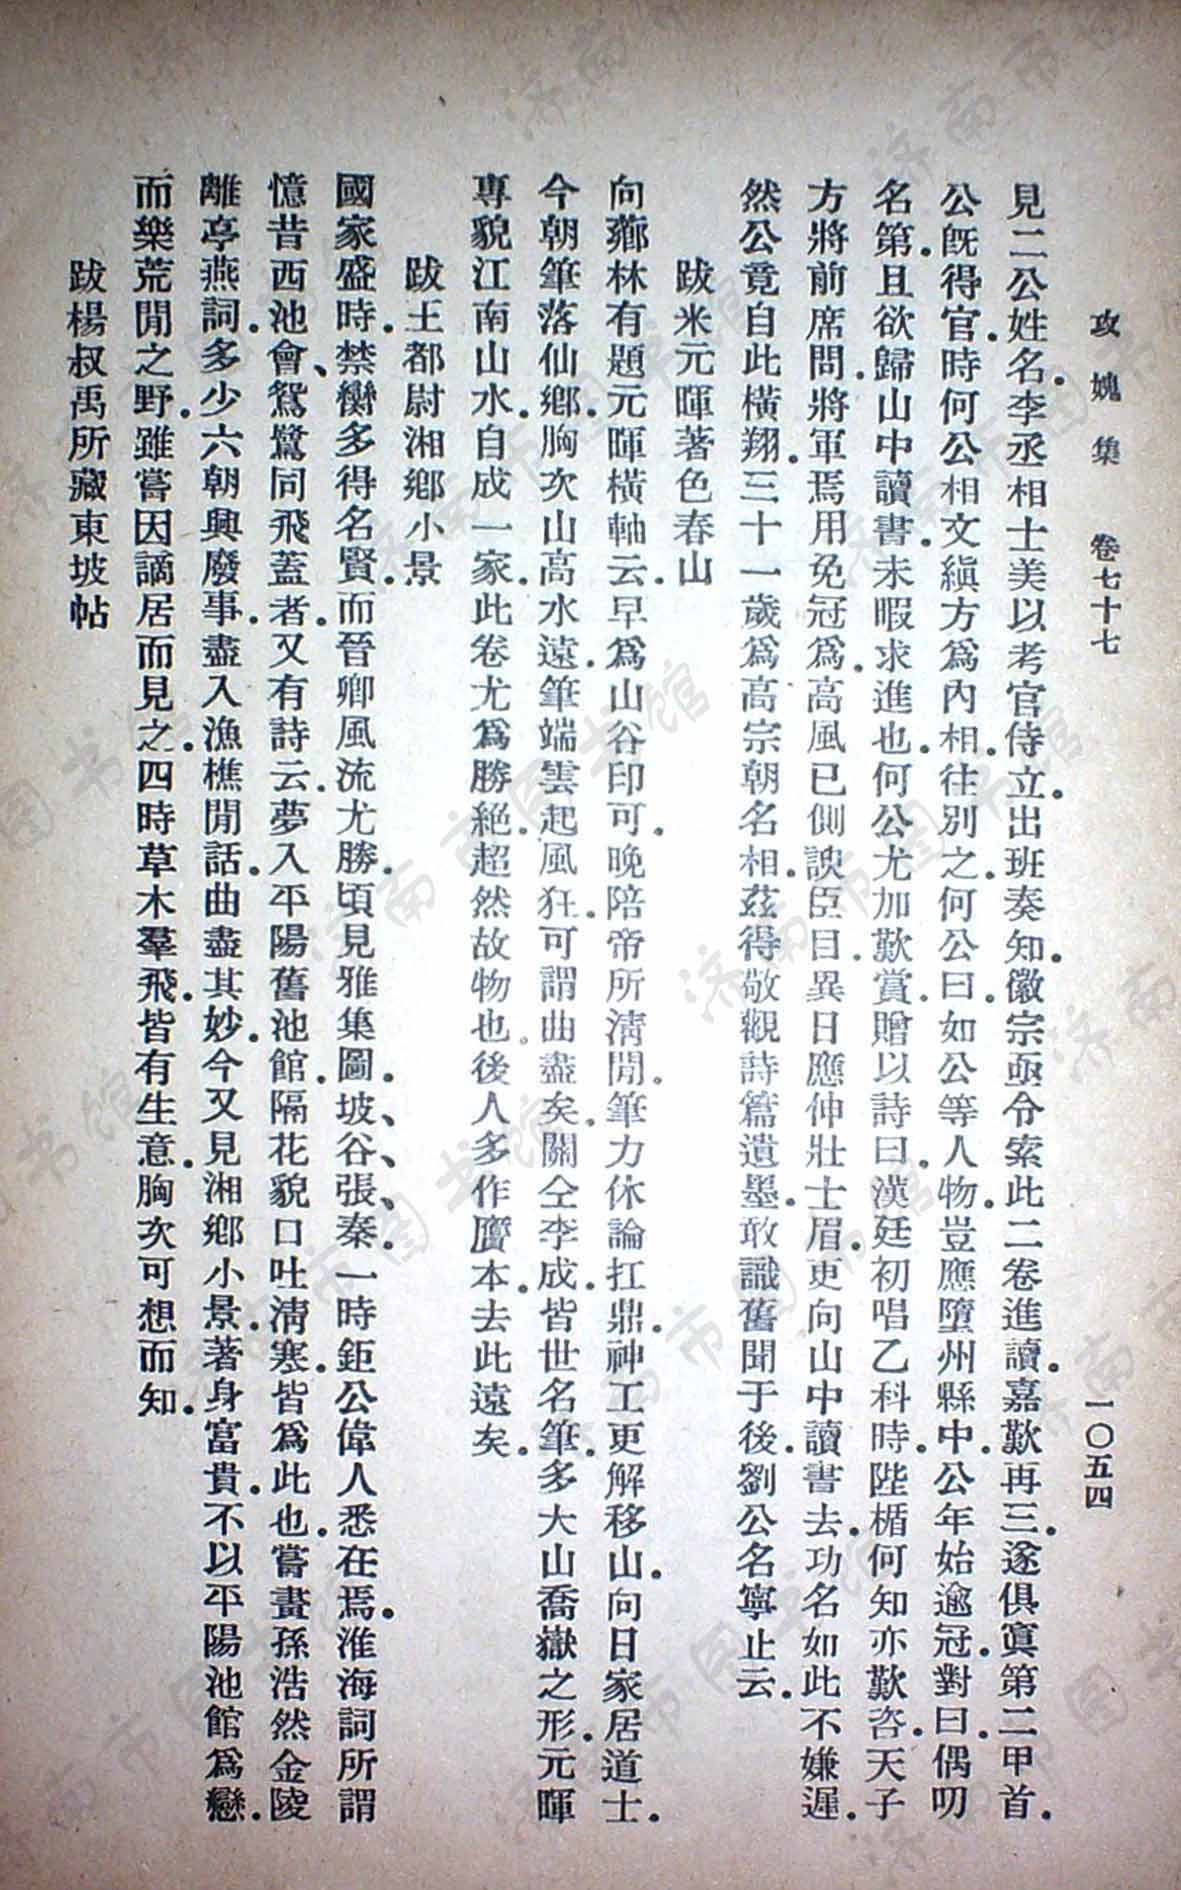 攻媿集 卷七十七 一〇五四
見二公姓名.李丞相士美以考官侍立.出班奏知.徽宗亟令索此二卷進讀.嘉歎再三.遂俱寘第二甲首.
公旣得官.時何公相文縝方爲內相.往別之.何公曰.如公等人物.豈應墮州縣中.公年始逾冠.對曰.偶叨
名第.且欲歸山中讀書.未暇求進也.何公尤加歎賞.贈以詩曰.漢廷初唱乙科時.陛楯何知亦歎咨.天子
方將前席問.將軍焉用免冠爲.高風已側諛臣目.異日應伸壯士眉.更向山中讀書去.功名如此不嫌遲.
然公竟自此橫翔.三十一歲爲高宗朝名相.茲得敬觀詩篇遺墨.敢識舊聞于後.劉公名寧止云.
跋米元暉著色春山
向薌林有題元暉橫軸云.早爲山谷印可.晚陪帝所淸閒.筆力休論扛鼎.神工更解移山.向日家居道士.
今朝筆落仙鄕.胸次山高水遠.筆端雲起風狂.可謂曲盡矣.關仝李成.皆世名筆.多大山喬嶽之形.元暉
專貌江南山水.自成一家.此卷尤爲勝絕.超然故物也.後人多作贋本.去此遠矣.
跋王都尉湘鄕小景
國家盛時.禁臠多得名賢.而晉卿風流尤勝.頃見雅集圖.坡、谷、張、秦.一時鉅公偉人悉在焉.淮海詞所謂
憶昔西池會、鴛鷺同飛蓋者.又有詩云.夢入平陽舊池館.隔花貌口吐淸寒.皆爲此也.嘗畫孫浩然金陵
離亭燕詞.多少六朝興廢事.盡入漁樵閒話.曲盡其妙.今又見湘鄕小景.著身富貴.不以平陽池館爲戀.
而樂荒閒之野.雖嘗因謫居而見之.四時草木羣飛.皆有生意.胸次可想而知.
跋楊叔禹所藏東坡帖
济南市图书馆